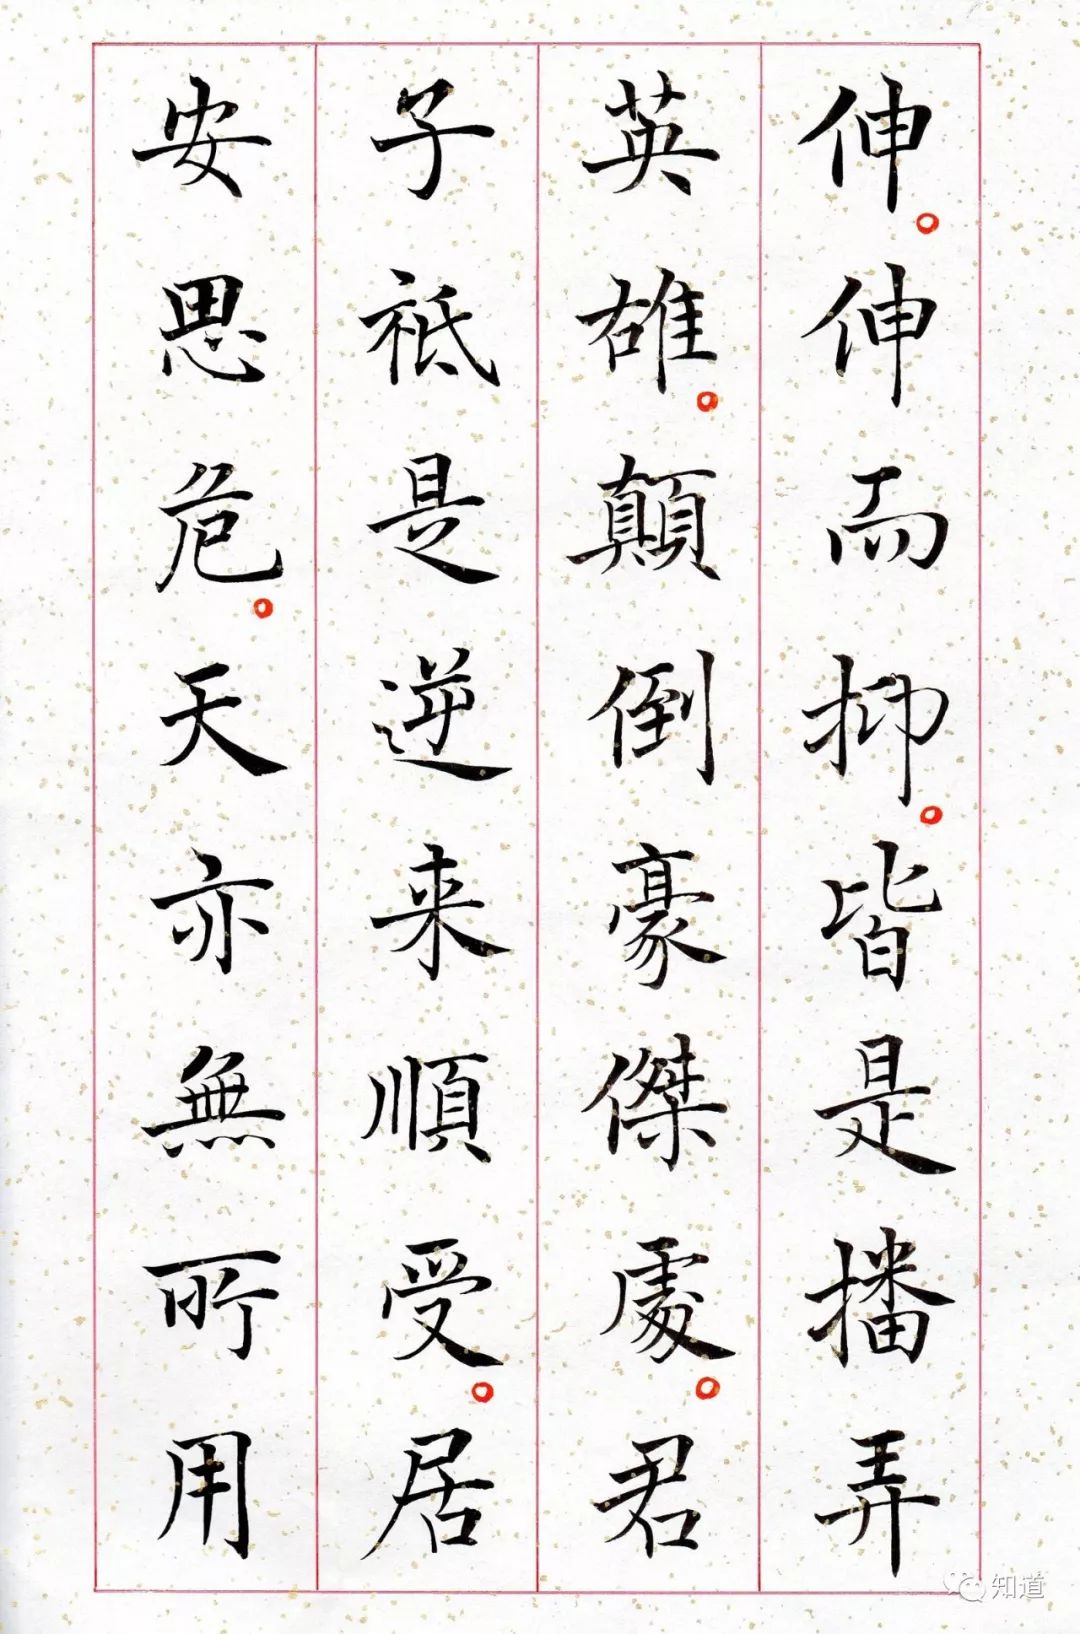 伸。伸而抑。皆是播弄
英雄。顛倒豪傑處。君
子祗是逆来順受。居
安思危。天亦無所用
知道